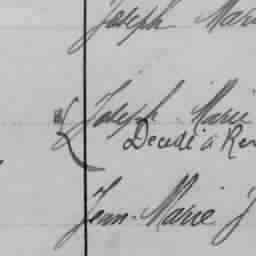 Joseph Mari
Joseph Marie
Décédé à Ren
Jean-Marie J